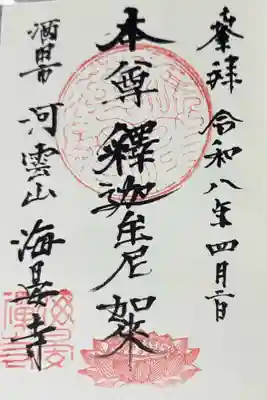 奉拝 令和八年四月二日
本尊 釋迦牟尼如来
酒田市 河雲山 海晏寺